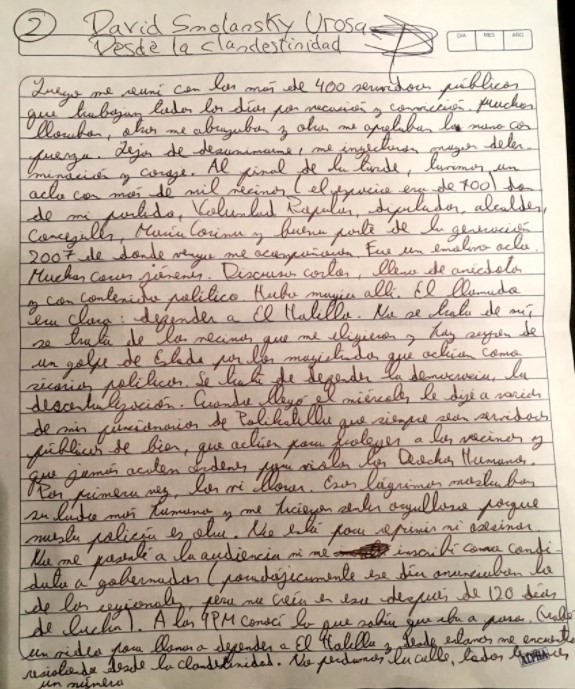 2 David Smolansky Urosa
Desde la clandestinidad
DIA MES AÑO
Luego me reuní con los más de 400 servidores públicos
que trabajan todos los días por vocación y convicción. Muchos
lloraban, otros me abrazaban y otros me apretaban la mano con
fuerza. Lejos de desanimarme, me inyectaron mayor deter-
minación y coraje. Al final de la tarde, tuvimos un
acto con más de mil vecinos (el espacio era de 700) don
de mi partido, Voluntad Popular, diputados, alcaldes,
Concejales, María Corina y buena parte de la generación
2007 de donde vengo me acompañaron. Fue un emotivo acto.
Muchas caras jóvenes. Discursos cortos, lleno de anécdotas
y con contenido político. Hubo magia allí. El llamado
era claro: defender a El Hatillo. No se trata de mí,
se trata de los vecinos que me eligieron y hoy sufren de
un golpe de Estado por los magistrados que actúan como
sicarios políticos. Se trata de defender la democracia, la
descentralización. Cuando llegó el miércoles le dije a varios
de mis funcionarios de Polihatillo que siempre sean servidores
públicos de bien, que actúen para proteger a los vecinos y
que jamás acaten órdenes para violar los Derechos Humanos.
Por primera vez, los vi llorar. Esas lágrimas mostraban
su lado más humano y me hicieron sentir orgulloso porque
nuestra policía es otra. No está para reprimir ni asesinar.
No me presenté a la audiencia ni me inscribí como candi-
dato a gobernador (paradójicamente ese día anunciaban lo
de las regionales, pero no creía en eso después de 120 días
de lucha). A las 9PM conocí lo que sabía que iba a pasar.
un video para llamar a defender a El Hatillo y desde entonces me encuentro
resistiendo desde la clandestinidad. No perdamos la calle, todos
un número
ALPHA